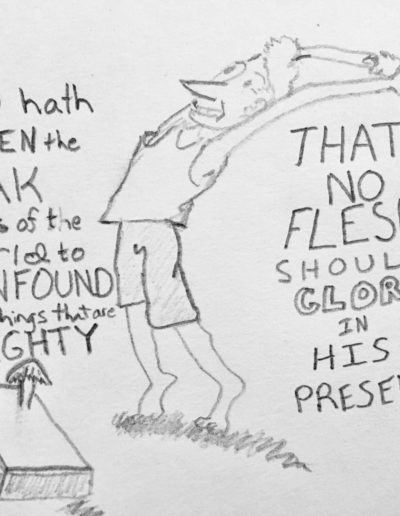 hath
EN the
AK
s of the
rld to
NFOUND
hings that are
GHTY
THAT
NO
FLES
SHOUL
GLOR
IN
HIS
PRESE